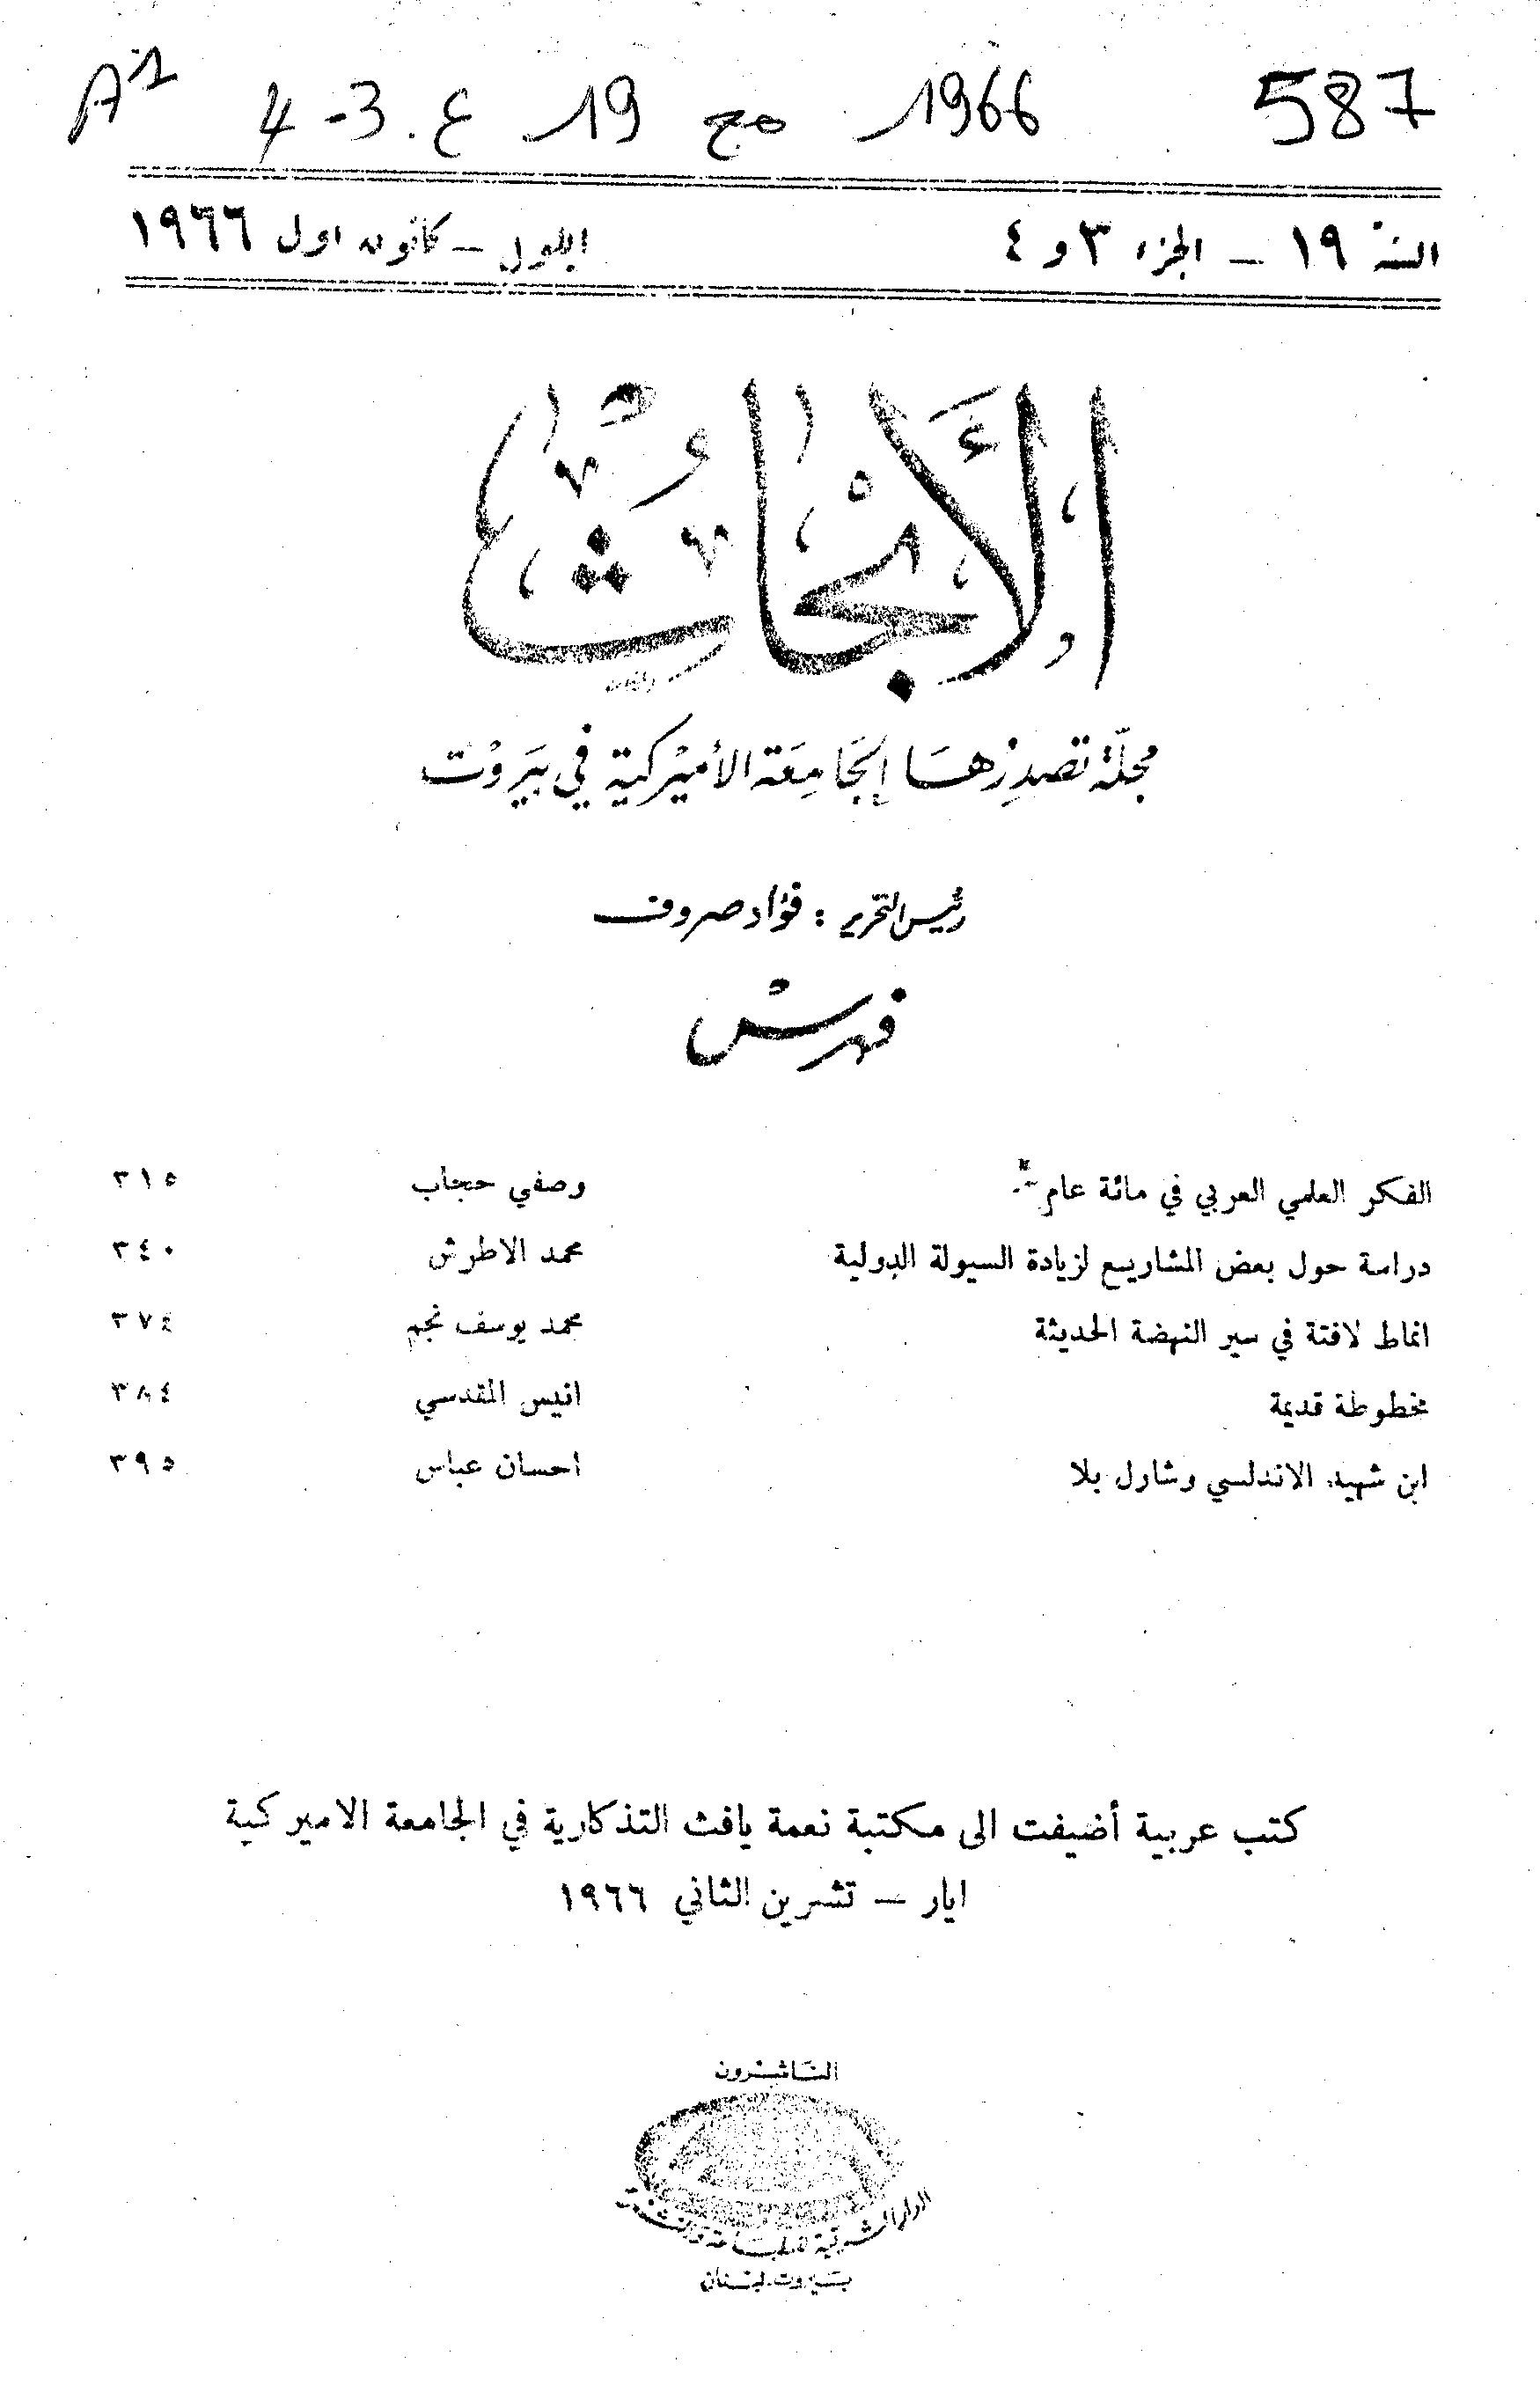 587 1966 مج 19 ع. 3-4 A1
السنة ١٩ – الجزء ٣ و ٤ ايلول – كانون اول ١٩٦٦
الأبحاث
مجلة تصدرها الجامعة الأميركية في بيروت
رئيس التحرير : فؤاد صروف
فهرس
الفكر العلمي العربي في مائة عام وصفي حجاب ٣١٥
دراسة حول بعض المشاريع لزيادة السيولة الدولية محمد الاطرش ٣٤٠
انماط لافتة في سير النهضة الحديثة محمد يوسف نجم ٣٧٤
مخطوطة قديمة انيس المقدسي ٣٨٤
ابن شهيد الاندلسي وشارل بلا احسان عباس ٣٩٥
كتب عربية أضيفت الى مكتبة نعمة يافث التذكارية في الجامعة الاميركية
ايار – تشرين الثاني ١٩٦٦
الناشرون
الدار الشرقية للطباعة والنشر
بيروت لبنان